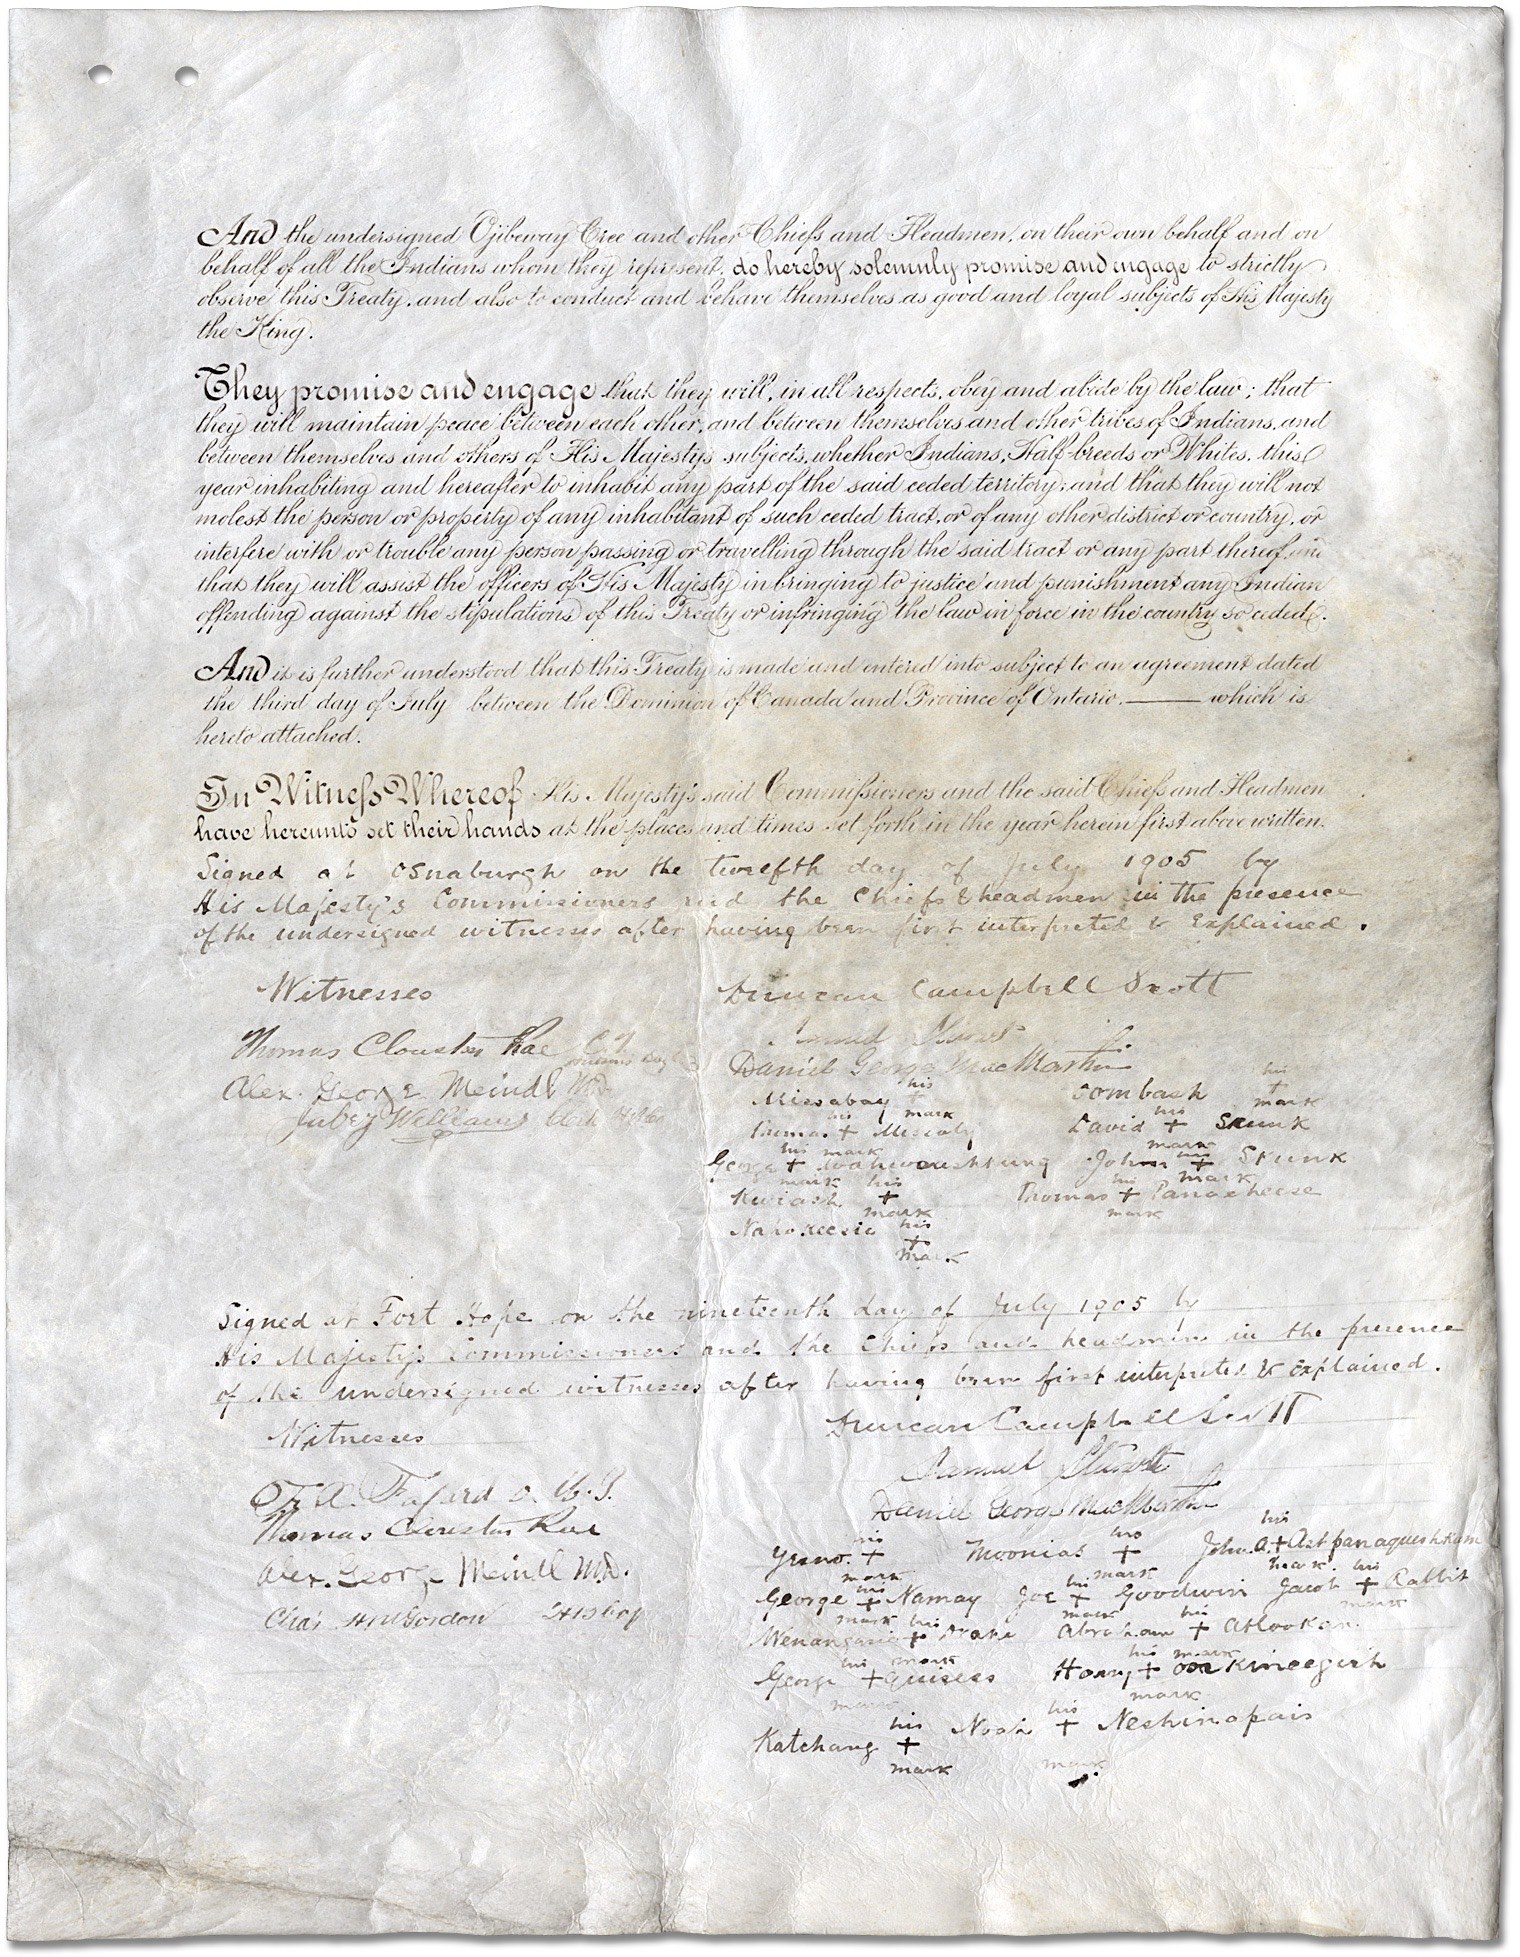 And the undersigned Ojibeway Cree and other Chiefs and Headmen, on their own behalf and on
behalf of all the Indians whom they represent, do hereby solemnly promise and engage to strictly
observe this Treaty, and also to conduct and behave themselves as good and loyal subjects of His Majesty
the King.
They promise and engage that they will, in all respects, obey and abide by the law; that
they will maintain peace between each other, and between themselves and other tribes of Indians, and
between themselves and others of His Majesty's subjects, whether Indians, Half-breeds or Whites, this
year inhabiting and hereafter to inhabit any part of the said ceded territory; and that they will not
molest the person or property of any inhabitant of such ceded tract, or of any other district or country, or
interfere with or trouble any person passing or travelling through the said tract or any part thereof, and
that they will assist the officers of His Majesty in bringing to justice and punishment any Indian
offending against the stipulations of this Treaty or infringing the law in force in the country so ceded.
And it is further understood that this Treaty is made and entered into subject to an agreement dated
the third day of July between the Dominion of Canada and Province of Ontario, which is
hereto attached.
In Witness Whereof His Majesty's said Commissioners and the said Chiefs and Headmen
have hereunto set their hands at the places and times set forth in the year herein first above written.
Signed at Osnaburgh on the twelfth day of July 1905 by
His Majesty's Commissioners and the Chiefs & headmen in the presence
of the undersigned witnesses after having been first interpreted & explained.
Witnesses Duncan Campbell Scott
Samuel Stewart
Thomas Clouston Rae C.T.
Daniel George MacMartin
Alex. George Meindl M.D.
Missabay his + mark Oombash his + mark
Jabez Williams
Thomas his + mark Missabay David his + mark Skunk
George his + mark Wahwaashkung John his + mark Skunk
Kwiash his + mark Thomas his + mark Panacheese
Nahokeesic his + mark
Signed at Fort Hope on the nineteenth day of July 1905 by
His Majesty's Commissioners and the Chiefs and headmen in the presence
of the undersigned witnesses after having been first interpreted & explained.
Witnesses Duncan Campbell Scott
Samuel Stewart
F. X. Fafard S.J.
Daniel George MacMartin
Thomas Clouston Rae
Yesno his + mark Moonias his + mark John A. his + mark Astpanaqueshkum
Alex. George Meindl M.D.
George his + mark Namay Joe his + mark Goodwin Jacob his + mark Rabbit
Chas H M Gordon H B Coy
Wenangasie his + mark Drake Abraham his + mark Atlookan
George his + mark Quisees Harry his + mark Ooskineegish
Katchang his + mark Noah his + mark Neshinapais